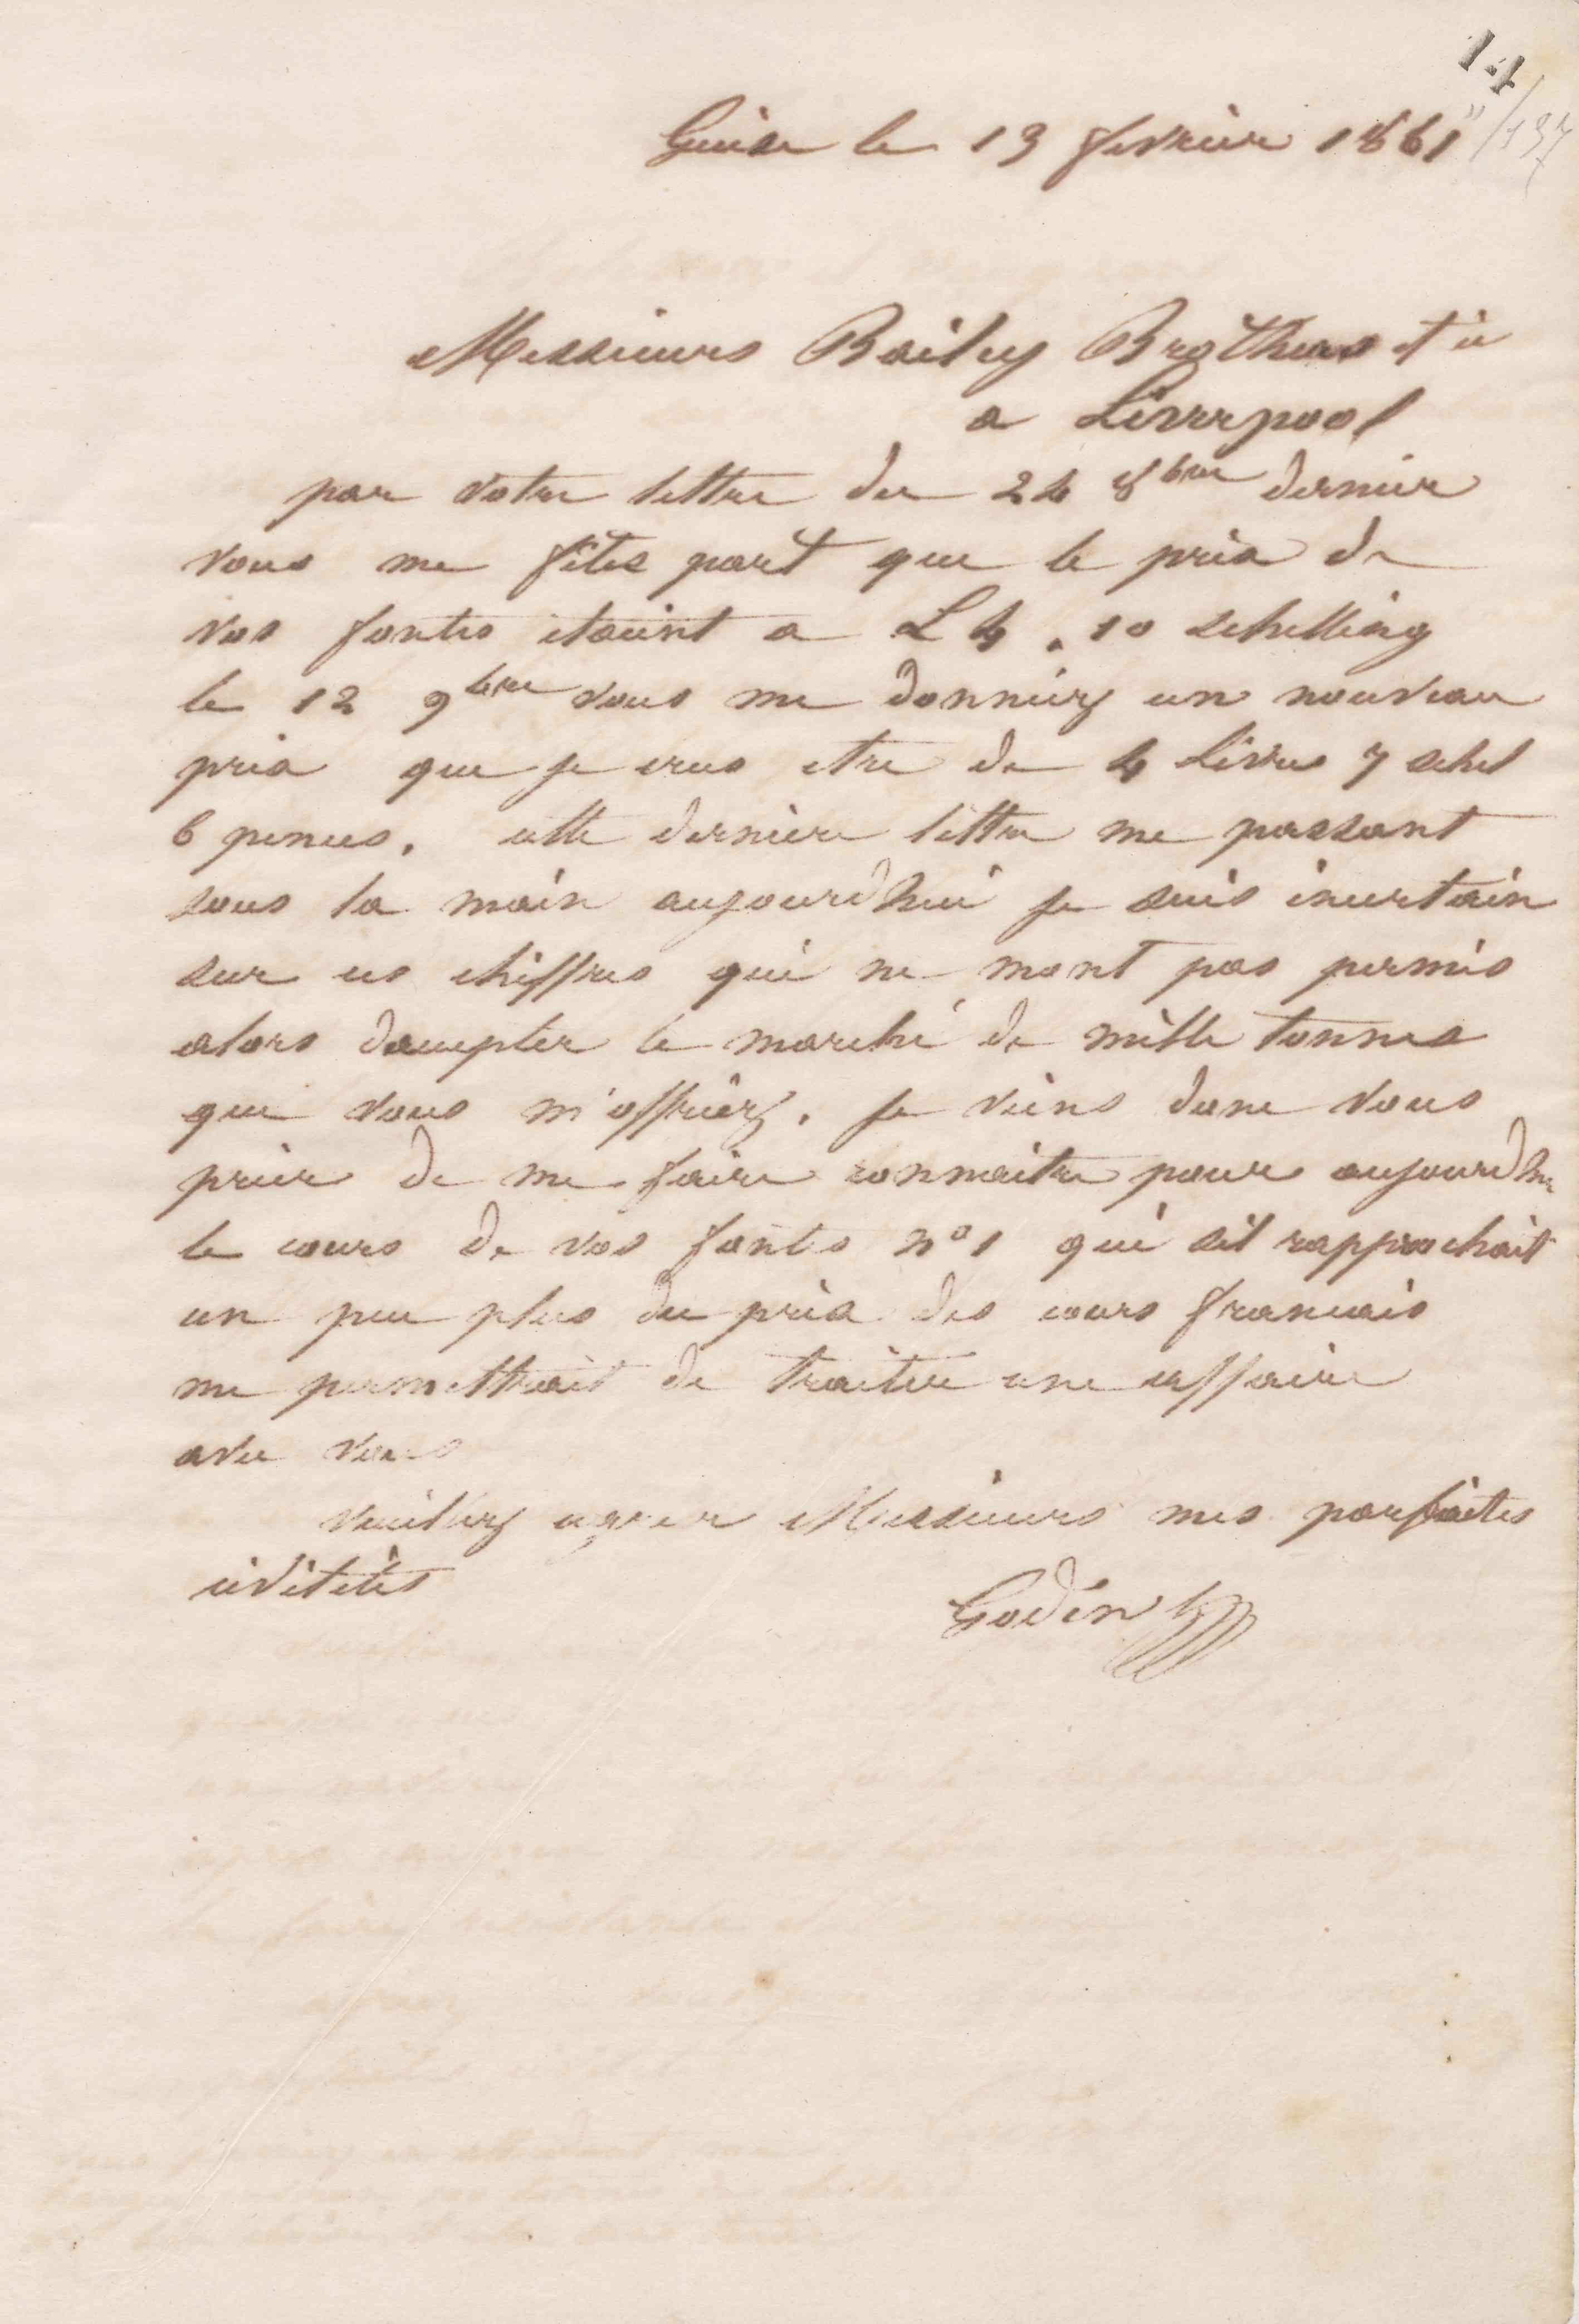 14
/137
Guise le 13 fevrier 1861
Messieurs Bailey Brothers et cie
a Liverpool
par votre lettre du 24 8bre dernier
vous me fites part que le prix de
vos fontes etaient a L 4 . 10 schelling
le 12 9bre vous me donniez un nouveau
prix que je crus etre de 4 Livres 7 schel
6 pences. cette dernière lettre me passant
sous la main aujourdhui je suis incertain
sur ces chiffres qui ne mont pas permis
alors daccepter le marché de mille tonnes
que vous m'offriez. je viens donc vous
prier de me faire connaitre pour aujourdhui
le cours de vos fontes no 1 qui sil rapprochait
un peu plus du prix des cours francais
me permettrait de traiter une affaire
avec vous
veuillez agreer Messieurs mes parfaites
civilités
Godin